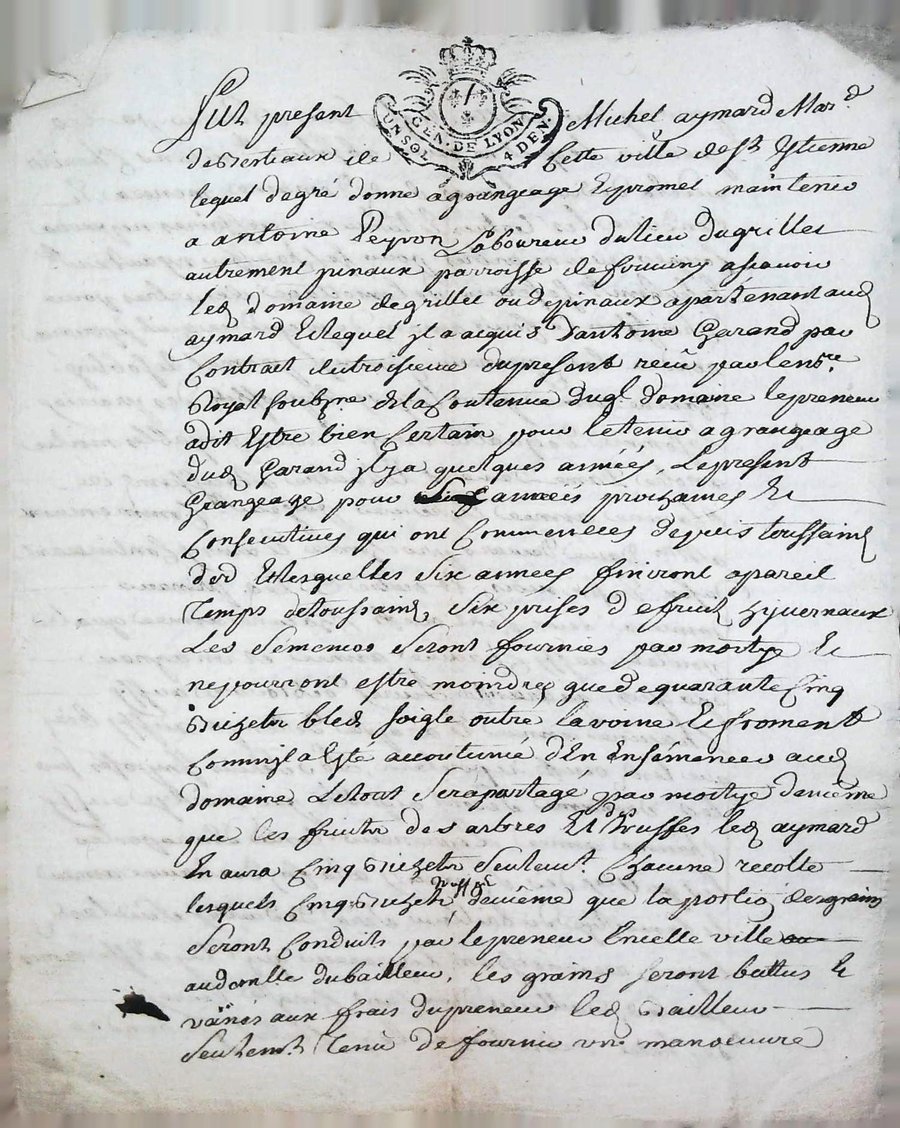 GEN. DE LYON
UN SOL 4 DEN.
Fut present Michel aymard Mar.d
de Berteaux de Cette ville de St Etienne
lequel de gré donne a grangeage Et promet maintenir
a antoine Peyron Laboureur du lieu du grillet
autrement pinaux parroisse de fouiny ascavoir
led domaine de grillet ou de pinaux apartenant aud
aymard Et lequel il a acquis d'antoine Garand par
Contrait du troisieme du present receu par le no.re
Royal soubz.ne de la Contenue dugl domaine le preneur
a dit Estre bien Certain pour le tenir a grangeage
dud Garand il y a quelques années, Le present
Grangeage pour six années prochaines Et
Consecutives qui ont Commencées depuis toussaind
der.d Et lesquelles Six années finiront a pareil
Temps de toussaind, Six prises de fruid hyvernaux
Les Semences Seront fournies par moitye Et
ne pourront estre moindres que de quarante Cinq
Bichets bled soigle outre lavoine Et froment
Comme il a Esté accoutumé d'En Ensémencer aud
domaine, Le tout Sera partagé par moitye de mème
que les fruits des arbres Et Truffes led aymard
En aura Cinq Bichets Seulem.t Chacune recolte
lesquels Cinq Bichets truffes de mème que la portio des grains
Seront Conduits par le preneur En cette ville
au domlle du bailleur, les grains seront battus Et
vanés aux frais du preneur led Bailleur
Seulem.t Tenu de fournir une manoeuvre